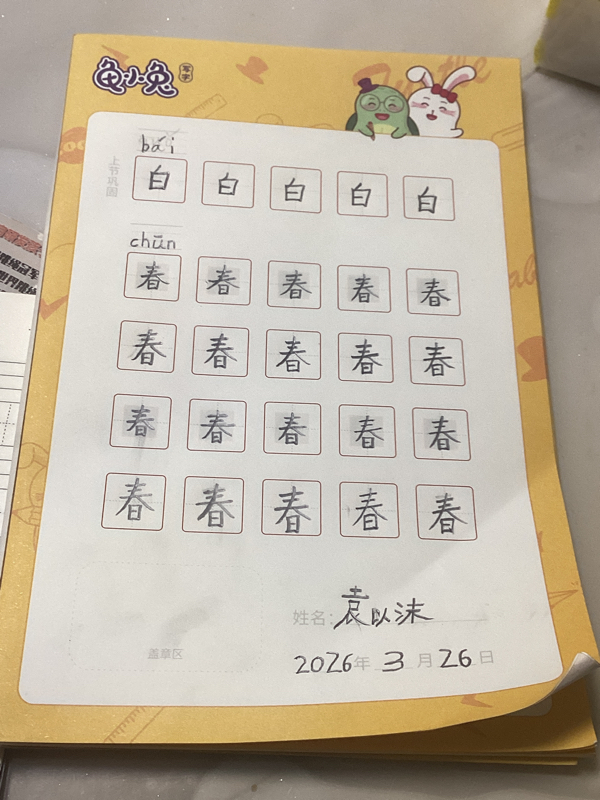 龟小兔写字
bái
上节巩固
白 白 白 白 白
chūn
春 春 春 春 春
春 春 春 春 春
春 春 春 春 春
春 春 春 春 春
姓名：袁以沫
盖章区
2026年3月26日